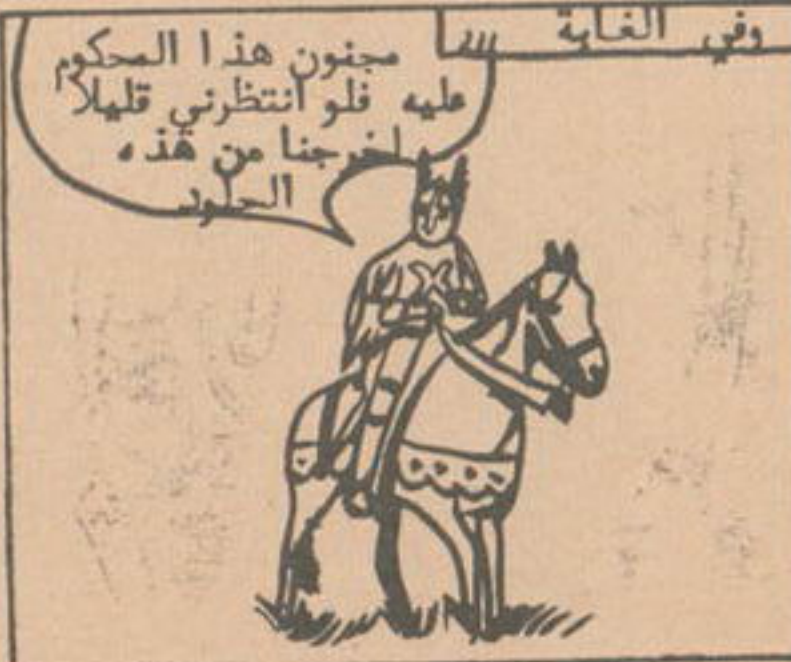 وفي الغابة
مجنون هذا المحكوم
عليه فلو انتظرني قليلا
لخرجنا من هذه
الحدود